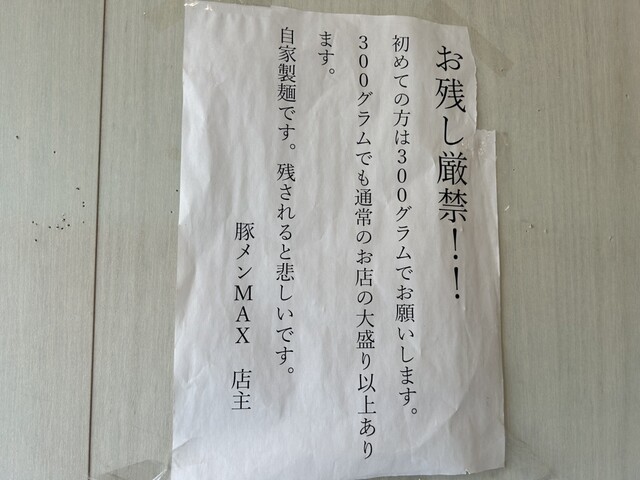 お残し厳禁！！
初めての方は３００グラムでお願いします。
３００グラムでも通常のお店の大盛り以上あり
ます。
自家製麺です。残されると悲しいです。
豚メンＭＡＸ　店主